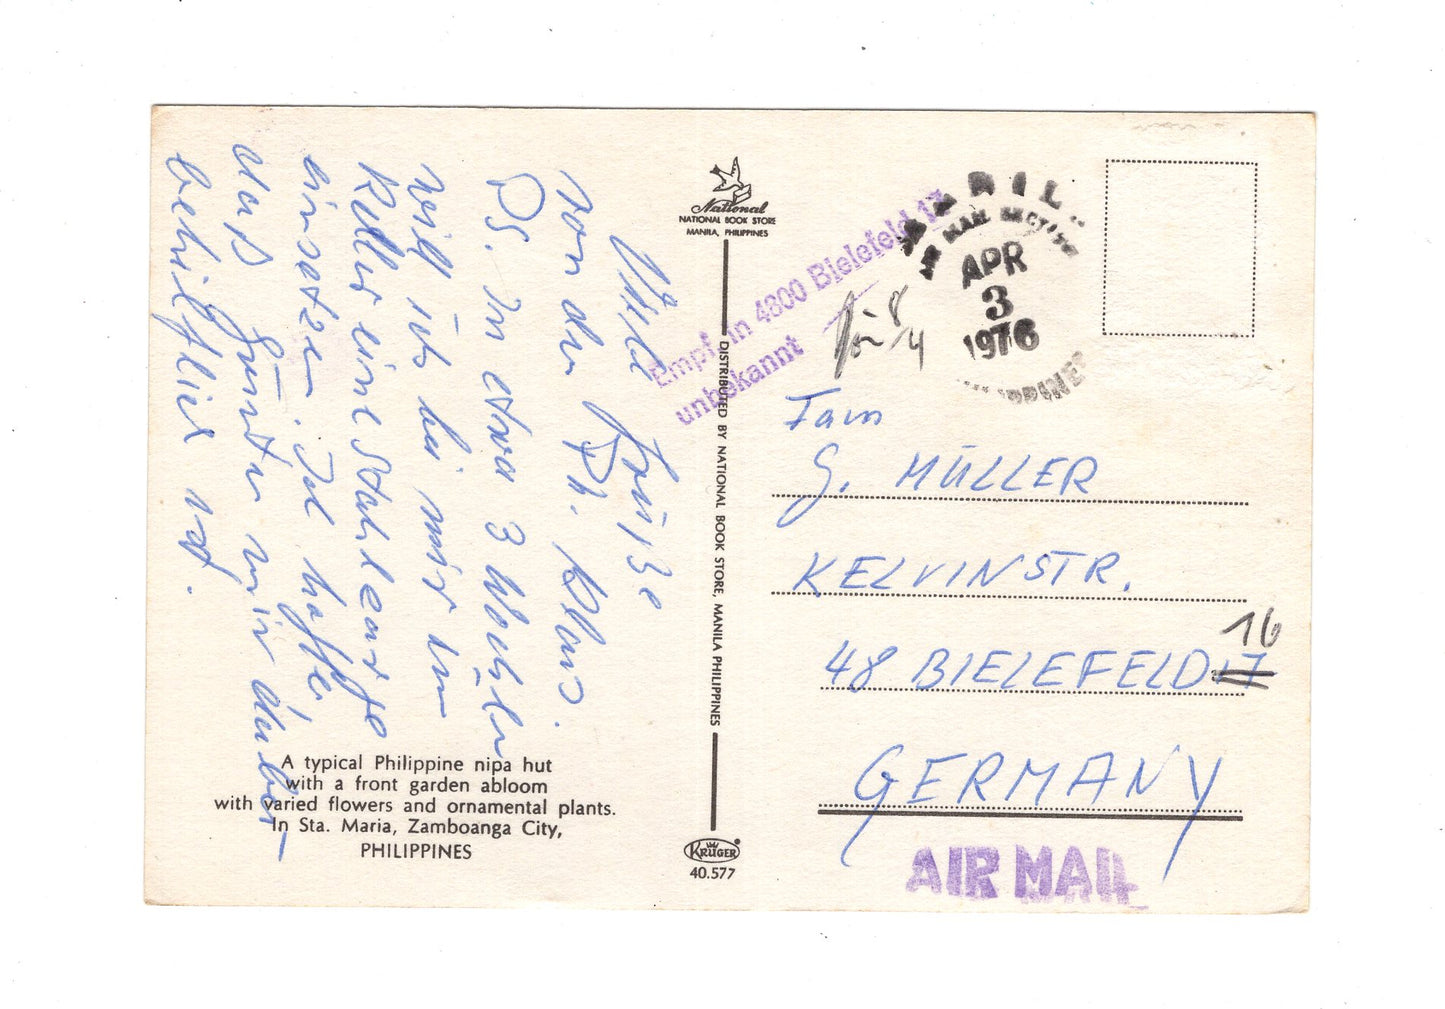 Viele Grüße
von den Ph. Klaus.
PS. In etwa 3 Wochen
will ich bei mir im
Keller eine Stahlcarge
einsetzen. Ich hoffe,
daß Günter mir dabei
behilflich ist.
A typical Philippine nipa hut
with a front garden abloom
with varied flowers and ornamental plants.
In Sta. Maria, Zamboanga City,
PHILIPPINES
National
NATIONAL BOOK STORE
MANILA, PHILIPPINES
DISTRIBUTED BY NATIONAL BOOK STORE, MANILA PHILIPPINES
KRÜGER
40.577
Empf. in 4800 Bielefeld 17
unbekannt
8/4
MANILA
AIR MAIL SECTION
APR
3
1976
PHILIPPINES
Fam
G. MÜLLER
KELVINSTR.
16
48 BIELEFELD 17
GERMANY
AIR MAIL